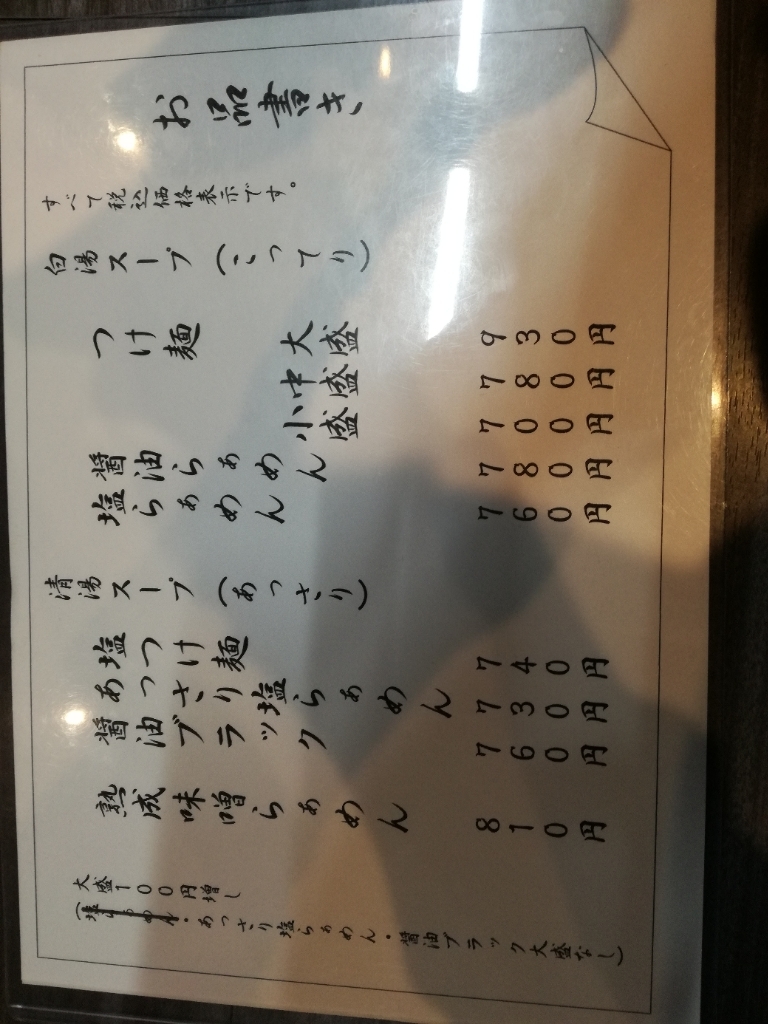 お品書き
すべて税込価格表示です。
白湯スープ（こってり）
つけ麺 大盛 930円
中盛 780円
小盛 700円
醤油らぁめん 780円
塩らぁめん 760円
清湯スープ（あっさり）
塩つけ麺 740円
あっさり塩らぁめん 730円
醤油ブラック 760円
熟成味噌らぁめん 810円
大盛100円増し
（塩らぁめん・あっさり塩らぁめん・醤油ブラック大盛なし）